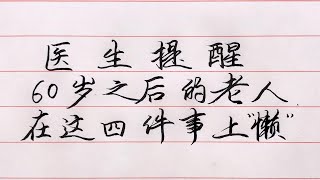 医生提醒
60岁之后的老人
在这四件事上"懒"